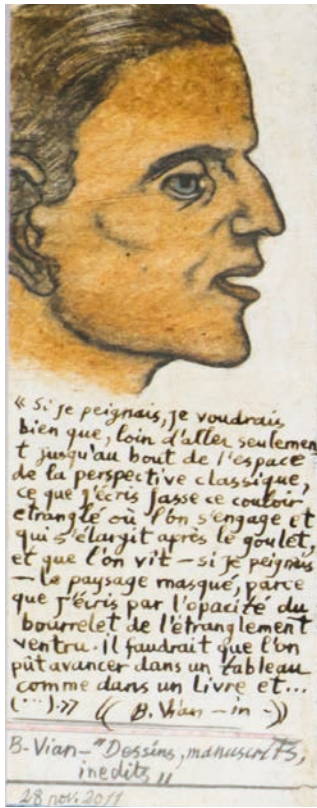 « Si je peignais, je voudrais
bien que, loin d'aller seulemen
t jusqu'au bout de l'espace
de la perspective classique,
ce que j'écris fasse ce couloir
etranglé où l'on s'engage et
qui s'élargit après le goulet,
et que l'on vit – si je peignais
– le paysage masqué, parce
que j'écris par l'opacité du
bourrelet de l'étranglement
ventru. Il faudrait que l'on
pût avancer dans un tableau
comme dans un Livre et...
(...) » (( B. Vian – in -))
B-Vian – "Dessins, manuscrits,
inedits "
28 nov. 2011